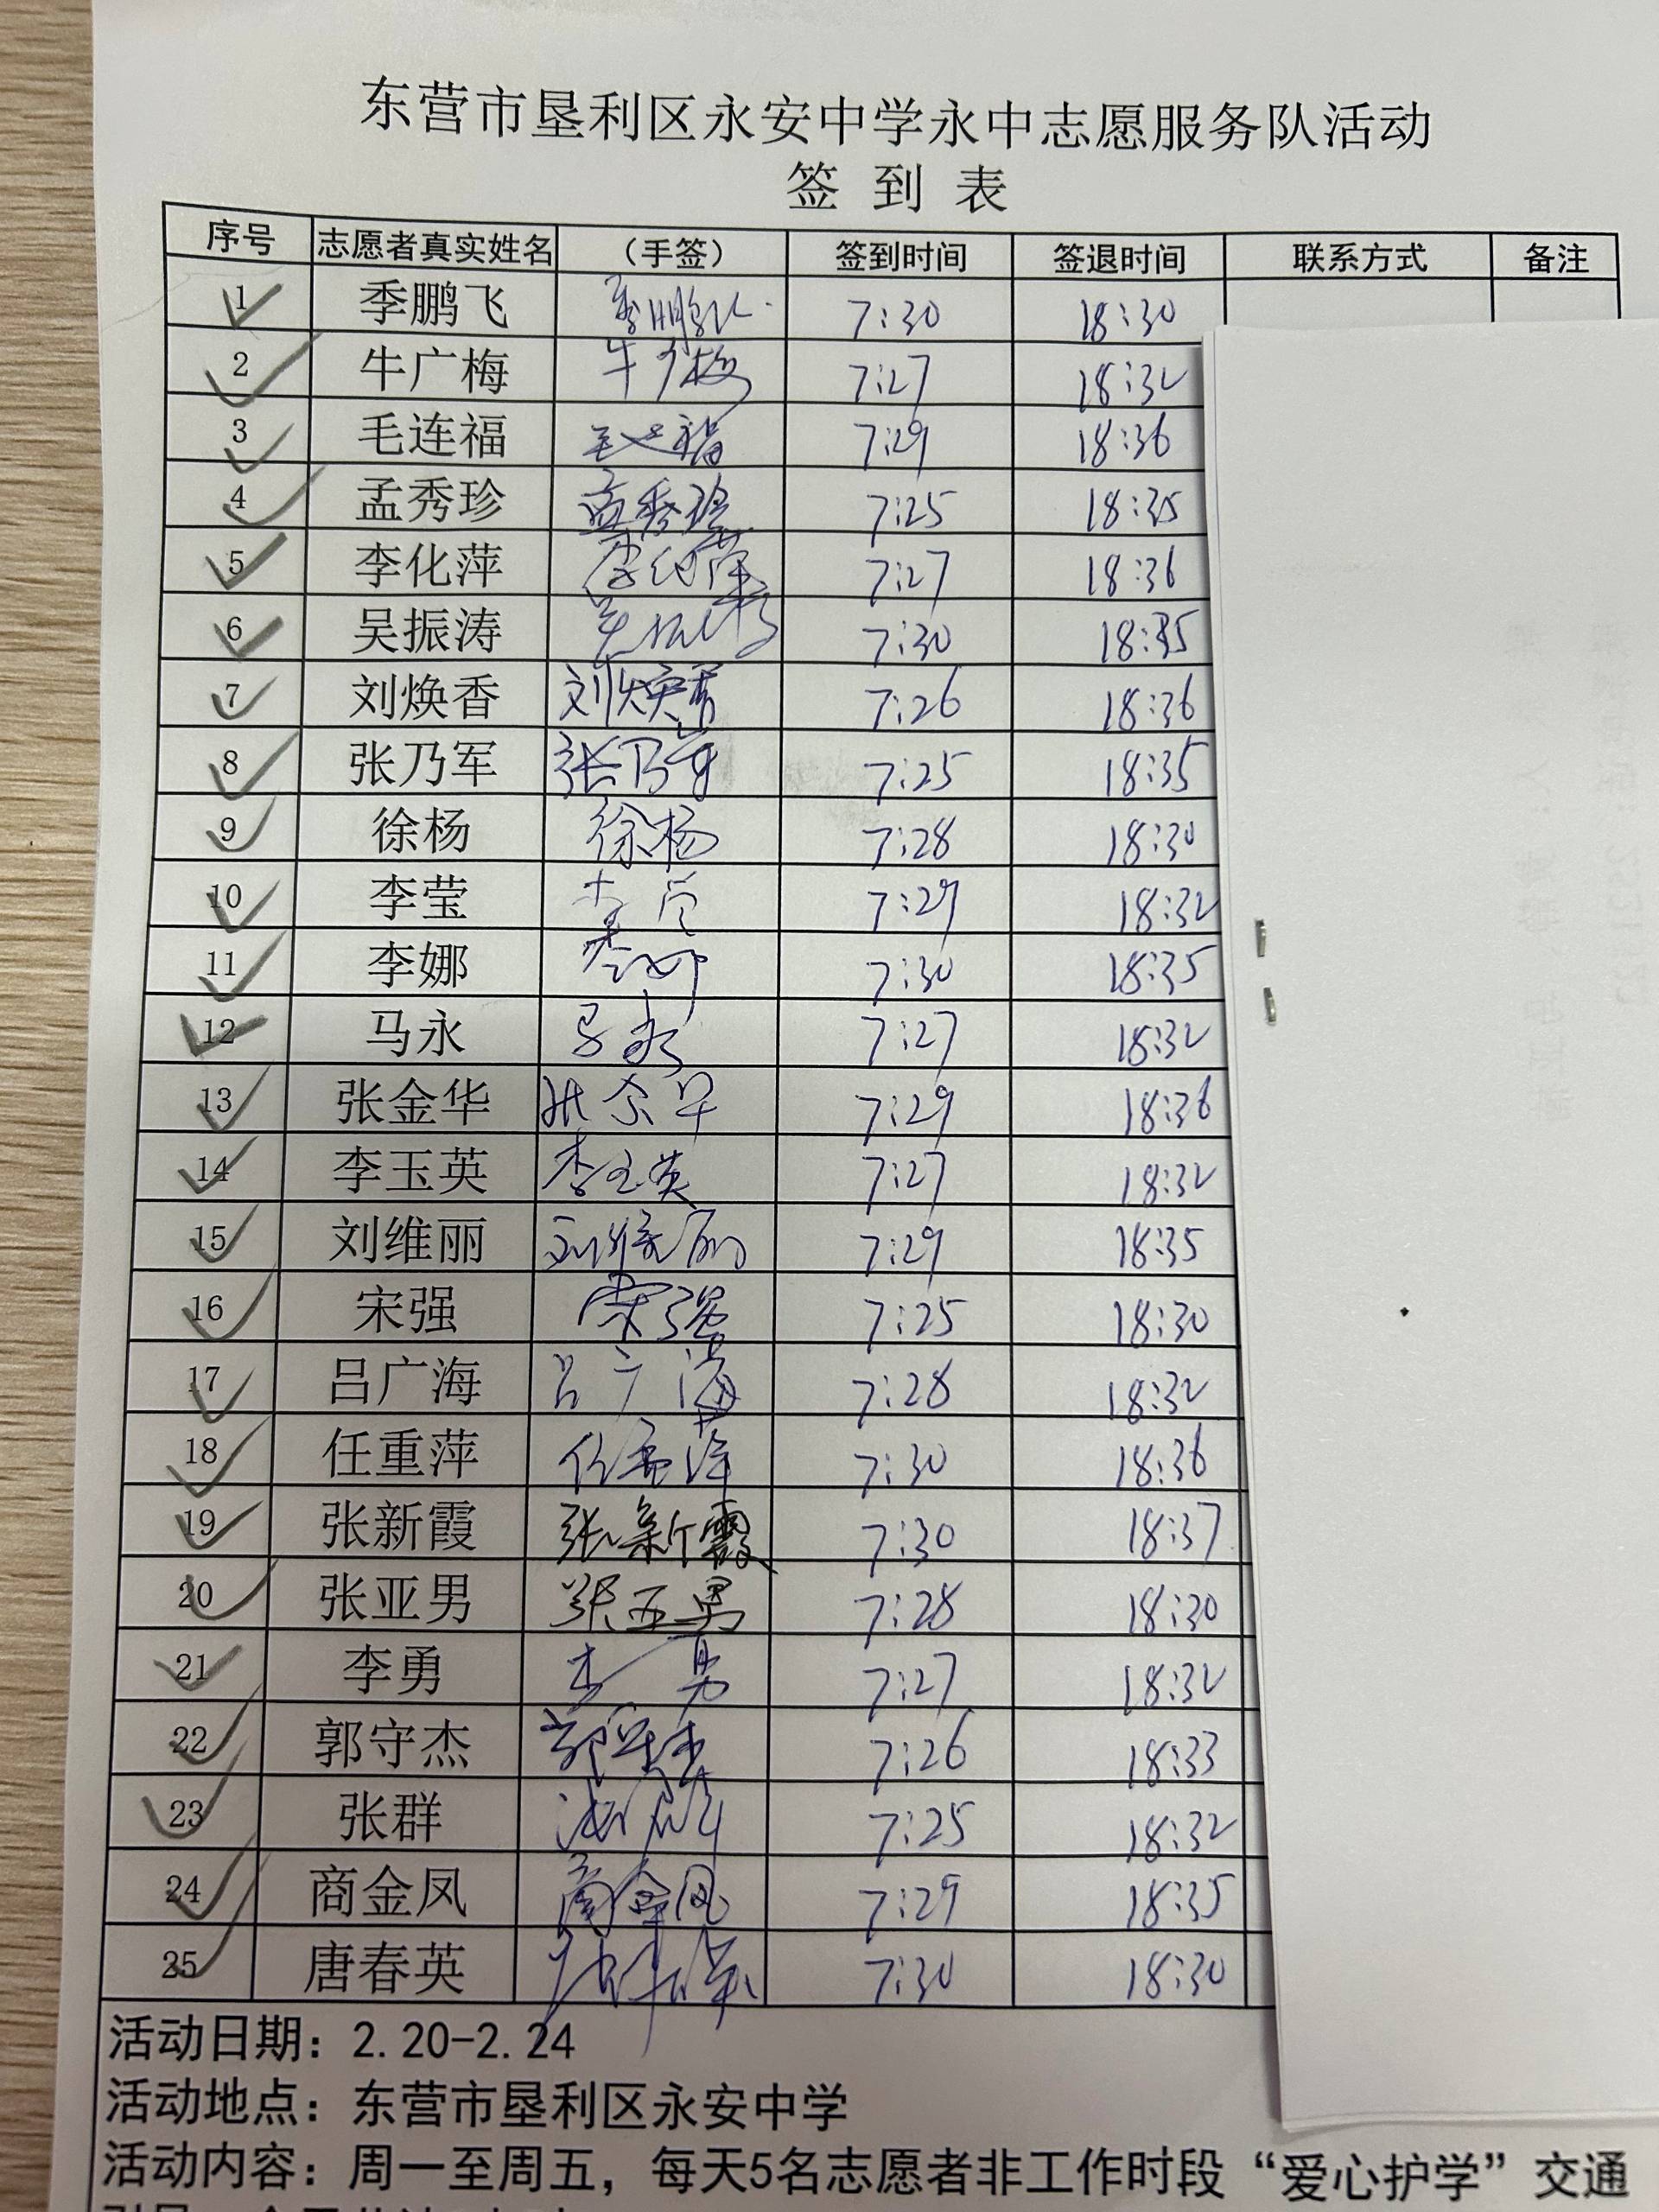 东营市垦利区永安中学永中志愿服务队活动
签 到 表
序号 志愿者真实姓名 （手签） 签到时间 签退时间 联系方式 备注
1 季鹏飞 季鹏飞 7:30 18:30
2 牛广梅 牛广梅 7:27 18:32
3 毛连福 毛连福 7:29 18:36
4 孟秀珍 孟秀珍 7:25 18:35
5 李化萍 李化萍 7:27 18:36
6 吴振涛 吴振涛 7:30 18:35
7 刘焕香 刘焕香 7:26 18:36
8 张乃军 张乃军 7:25 18:35
9 徐杨 徐杨 7:28 18:30
10 李莹 李莹 7:29 18:32
11 李娜 李娜 7:30 18:35
12 马永 马永 7:27 18:32
13 张金华 张金华 7:29 18:36
14 李玉英 李玉英 7:27 18:32
15 刘维丽 刘维丽 7:29 18:35
16 宋强 宋强 7:25 18:30
17 吕广海 吕广海 7:28 18:32
18 任重萍 任重萍 7:30 18:36
19 张新霞 张新霞 7:30 18:37
20 张亚男 张亚男 7:28 18:30
21 李勇 李勇 7:27 18:32
22 郭守杰 郭守杰 7:26 18:33
23 张群 张群 7:25 18:32
24 商金凤 商金凤 7:29 18:35
25 唐春英 唐春英 7:30 18:30
活动日期：2.20-2.24
活动地点：东营市垦利区永安中学
活动内容：周一至周五，每天5名志愿者非工作时段“爱心护学”交通